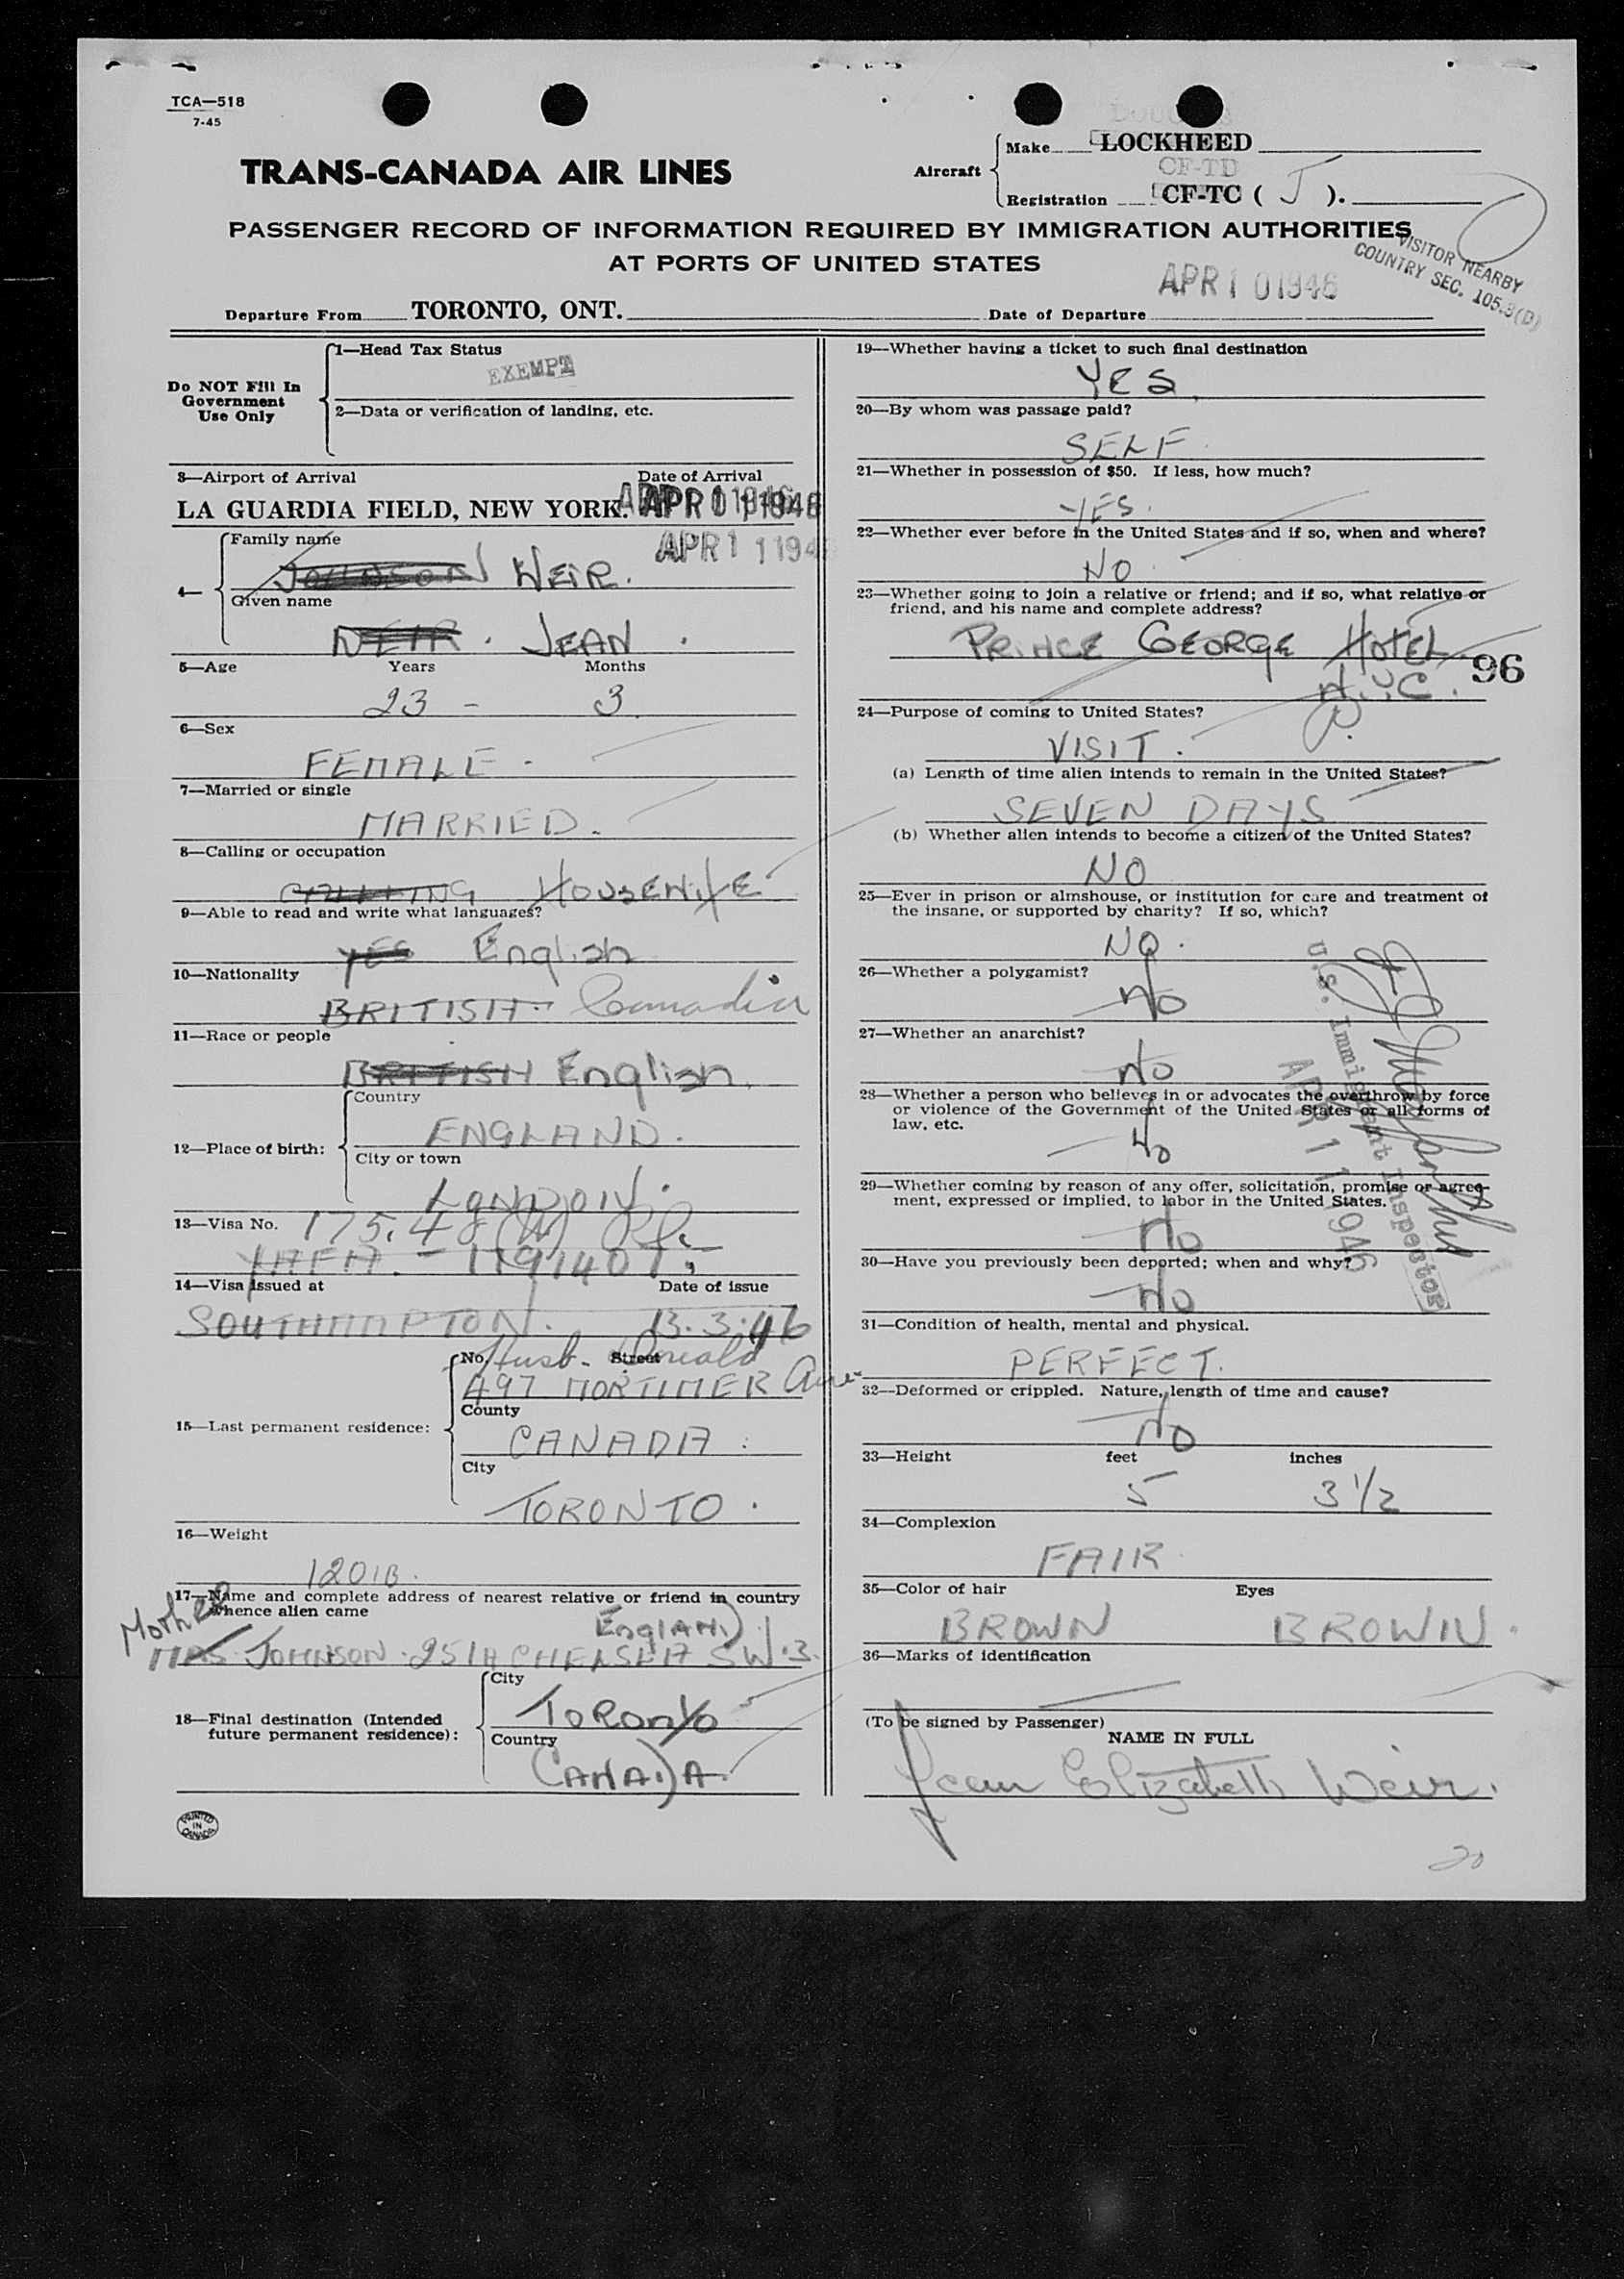 TCA—518
7-45
TRANS-CANADA AIR LINES
Aircraft
Make LOCKHEED
CF-TD
Registration CF-TC ( J ).
PASSENGER RECORD OF INFORMATION REQUIRED BY IMMIGRATION AUTHORITIES
AT PORTS OF UNITED STATES
VISITOR NEARBY
COUNTRY SEC. 105.3(D)
APR 10 1946
Departure From TORONTO, ONT. Date of Departure
Do NOT Fill In
Government
Use Only
1—Head Tax Status
EXEMPT
2—Data or verification of landing, etc.
3—Airport of Arrival Date of Arrival
LA GUARDIA FIELD, NEW YORK.
APR 1 1 194
4—
Family name
JOHNSON WEIR.
Given name
WEIR. JEAN.
5—Age Years Months
23 - 3
6—Sex
FEMALE.
7—Married or single
MARRIED.
8—Calling or occupation
CALLING HOUSEWIFE
9—Able to read and write what languages?
YES English
10—Nationality
BRITISH Canadian
11—Race or people
BRITISH English
12—Place of birth:
Country
ENGLAND.
City or town
LONDON.
13—Visa No. 175.48
14—Visa issued at Date of issue
SOUTHAMPTON. 13.3.46
15—Last permanent residence:
No. Street
Husb. Donald
497 MORTIMER Ave
County
CANADA
City
TORONTO.
16—Weight
120 lB.
17—Name and complete address of nearest relative or friend in country
whence alien came
Mother
ENGLAND
MRS JOHNSON. 251A CHELSEA SW.3.
18—Final destination (Intended
future permanent residence):
City
TORONTO
Country
CANADA.
PRINTED
IN
CANADA
19—Whether having a ticket to such final destination
YES
20—By whom was passage paid?
SELF.
21—Whether in possession of $50. If less, how much?
YES.
22—Whether ever before in the United States and if so, when and where?
NO.
23—Whether going to join a relative or friend; and if so, what relative or
friend, and his name and complete address?
PRINCE GEORGE HOTEL.
96
N.Y.C.
24—Purpose of coming to United States?
VISIT.
(a) Length of time alien intends to remain in the United States?
SEVEN DAYS
(b) Whether alien intends to become a citizen of the United States?
NO
25—Ever in prison or almshouse, or institution for care and treatment of
the insane, or supported by charity? If so, which?
NO.
26—Whether a polygamist?
No
27—Whether an anarchist?
No
28—Whether a person who believes in or advocates the overthrow by force
or violence of the Government of the United States or all forms of
law, etc.
No
29—Whether coming by reason of any offer, solicitation, promise or agree-
ment, expressed or implied, to labor in the United States.
No
30—Have you previously been deported; when and why?
No
U.S. Immigrant Inspector
APR 11 1946
31—Condition of health, mental and physical.
PERFECT.
32—Deformed or crippled. Nature, length of time and cause?
No
33—Height feet inches
5 3 1/2
34—Complexion
FAIR
35—Color of hair Eyes
BROWN BROWN.
36—Marks of identification
(To be signed by Passenger)
NAME IN FULL
Jean Elizabeth Weir.
20